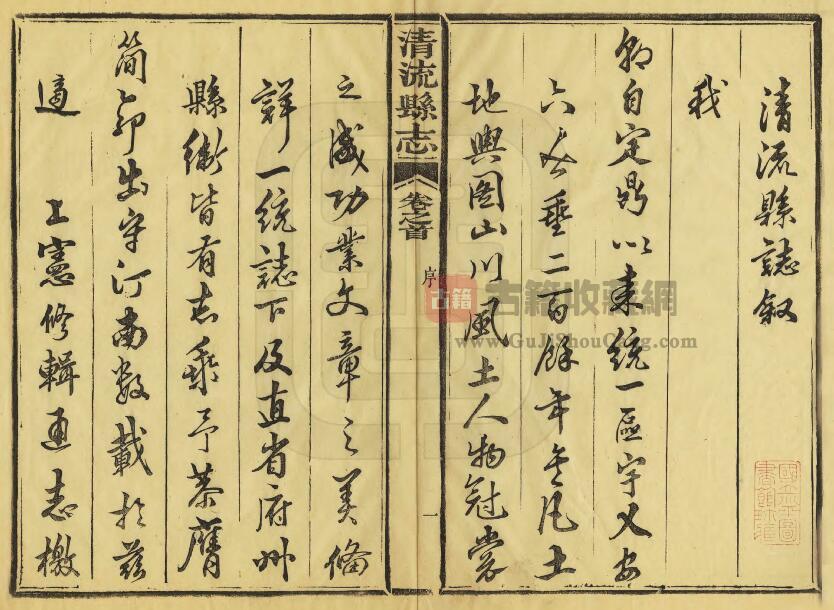 清流縣誌叙
我
朝自定鼎以來統一區宇乂安
六垂二百餘年凡土
地輿圖山川風土人物冠裳
清流縣志
卷之首
序
一
之盛功業文章之美備
詳一統誌下及直省府州
縣衛皆有志乘予恭膺
簡命出守汀南數載於茲
適 上憲修輯通志檄
古籍
古籍收藏網
www.GuJiShouCang.com